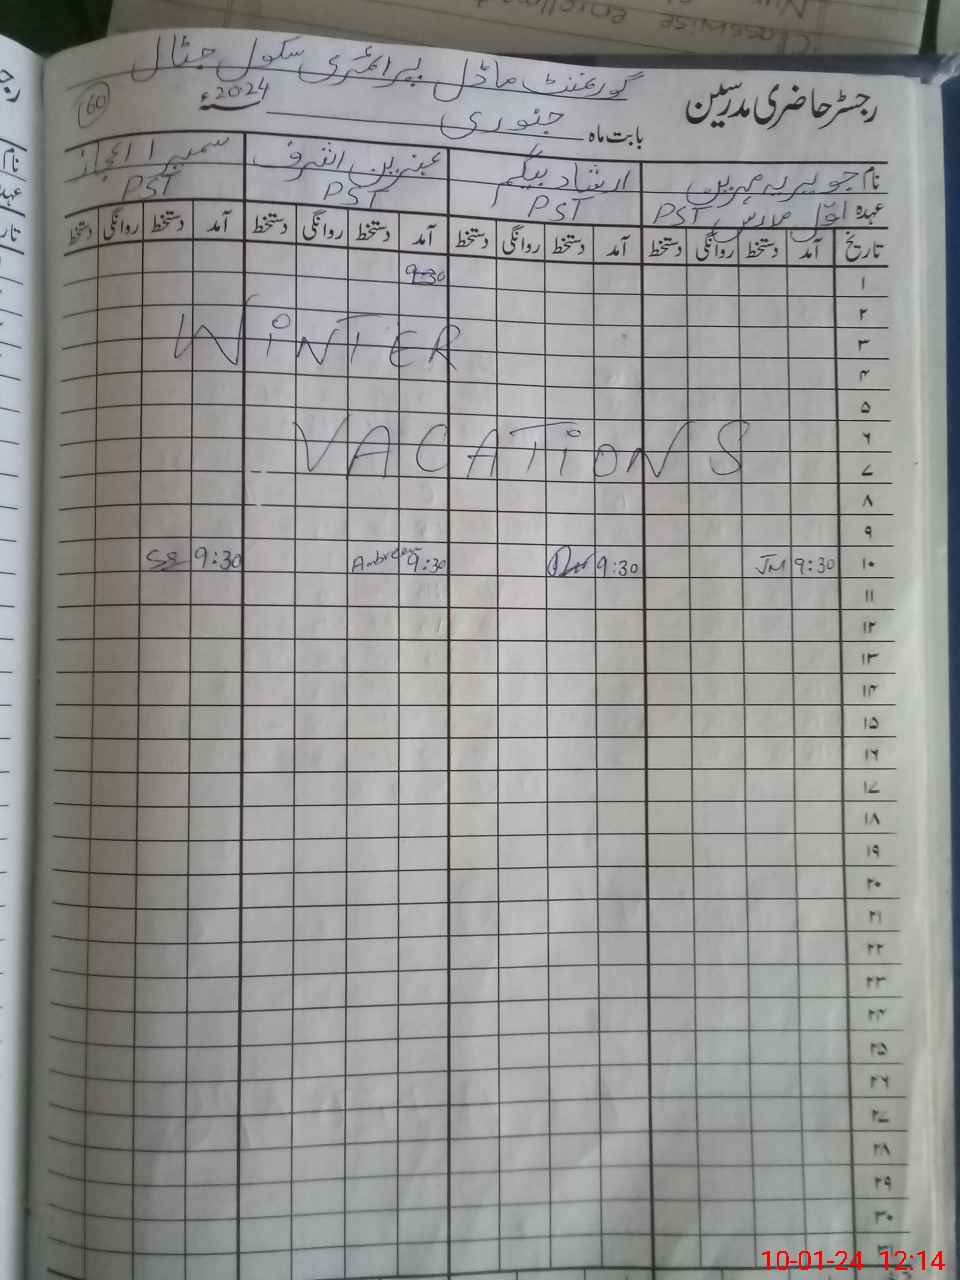 Classwise enrollment
گورنمنٹ ماڈل پرائمری سکول جٹال
رجسٹر حاضری مدرسین
بابت ماہ جنوری 2024ء
60
نام جویریہ مہرین ارشاد بیگم عنبرین اشرف سمیرا اعجاز
عہدہ اوّل مدرس PST PST PST PST
تاریخ آمد دستخط روانگی دستخط آمد دستخط روانگی دستخط آمد دستخط روانگی دستخط آمد دستخط روانگی دستخط
۱ 9:30
۲
WiNTER
۳
۴
۵
۶
VACATiONS
۷
۸
۹
۱۰ 9:30 JM 9:30 9:30 Ambreen 9:30 SS
۱۱
۱۲
۱۳
۱۴
۱۵
۱۶
۱۷
۱۸
۱۹
۲۰
۲۱
۲۲
۲۳
۲۴
۲۵
۲۶
۲۷
۲۸
۲۹
۳۰
۳۱
10-01-24 12:14